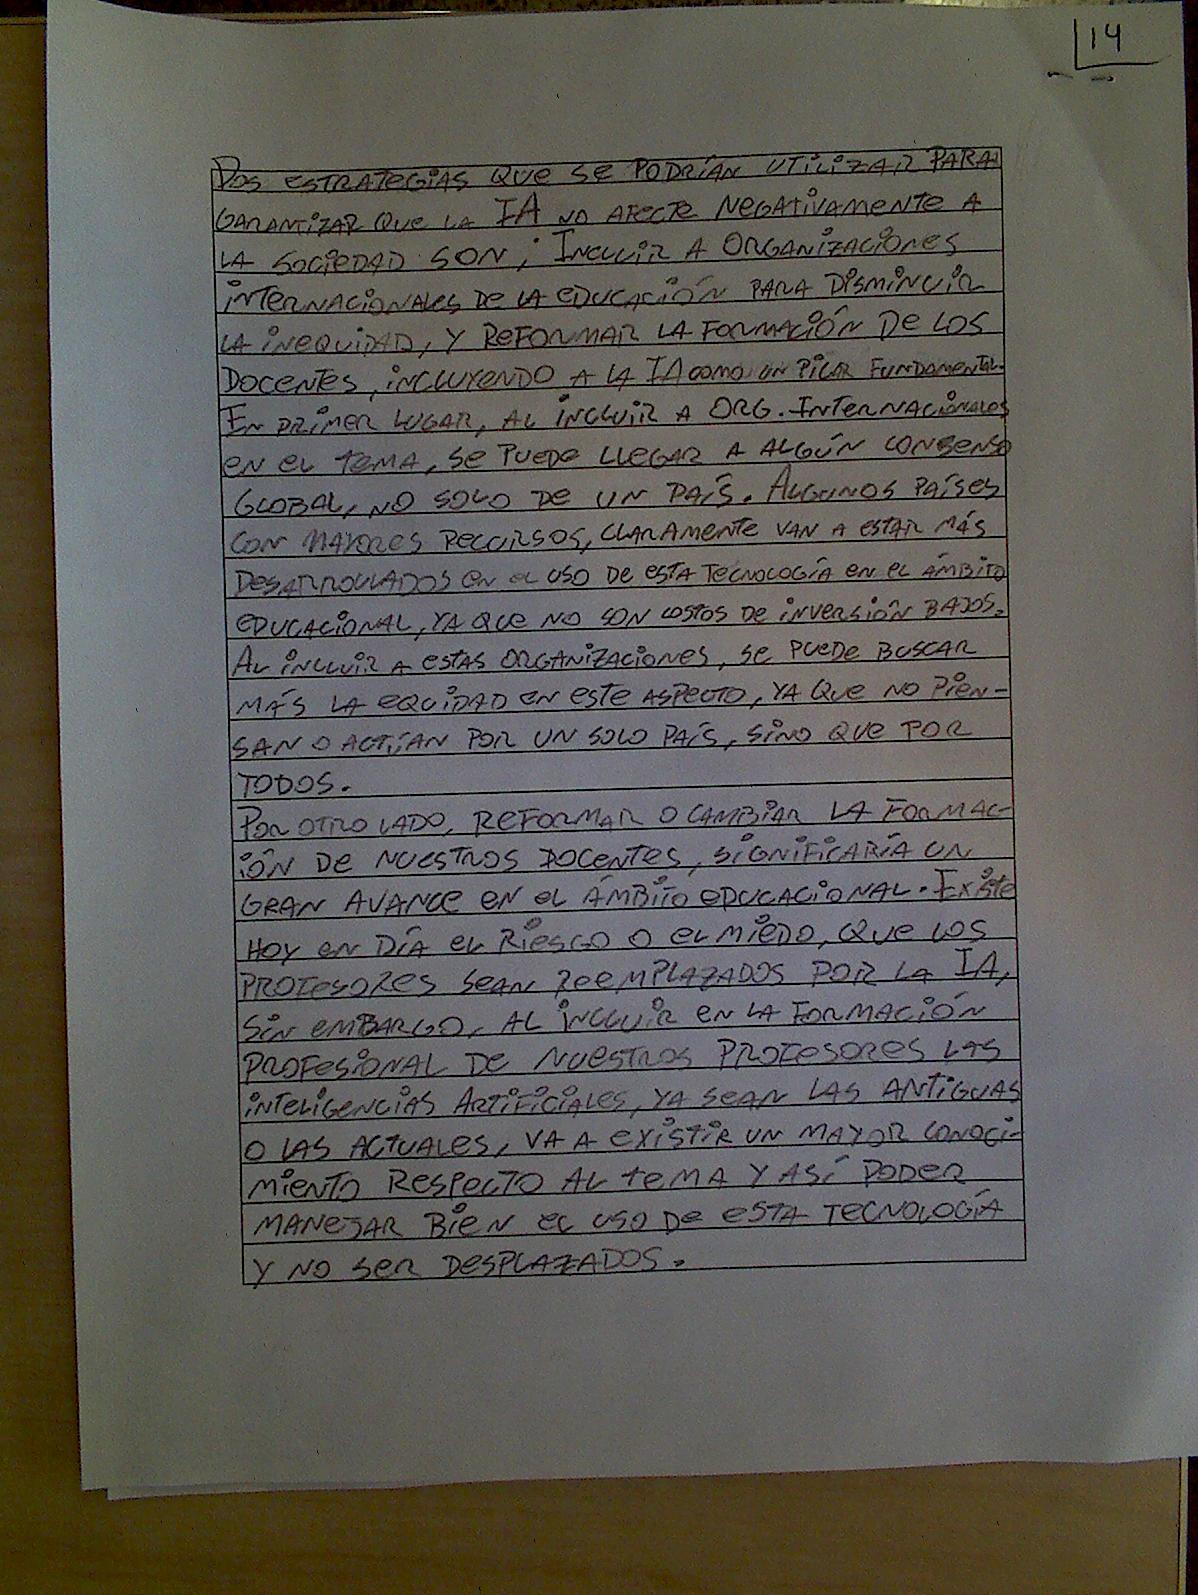 14
Dos estrategias que se podrían utilizar para
garantizar que la IA no afecte negativamente a
la sociedad son; Incluir a organizaciones
internacionales de la educación para disminuir
la inequidad, y reformar la formación de los
docentes, incluyendo a la IA como un pilar fundamental.
En primer lugar, al incluir a org. internacionales
en el tema, se puede llegar a algún consenso
global, no solo de un país. Algunos países
con mayores recursos, claramente van a estar más
desarrollados en el uso de esta tecnología en el ámbito
educacional, ya que no son costos de inversión bajos.
Al incluir a estas organizaciones, se puede buscar
más la equidad en este aspecto, ya que no pien-
san o actúan por un solo país, sino que por
todos.
Por otro lado, reformar o cambiar la formac-
ión de nuestros docentes, significaría un
gran avance en el ámbito educacional. Existe
hoy en día el riesgo o el miedo, que los
profesores sean reemplazados por la IA,
sin embargo, al incluir en la formación
profesional de nuestros profesores las
inteligencias artificiales, ya sean las antiguas
o las actuales, va a existir un mayor conoci-
miento respecto al tema y así poder
manejar bien el uso de esta tecnología
y no ser desplazados.